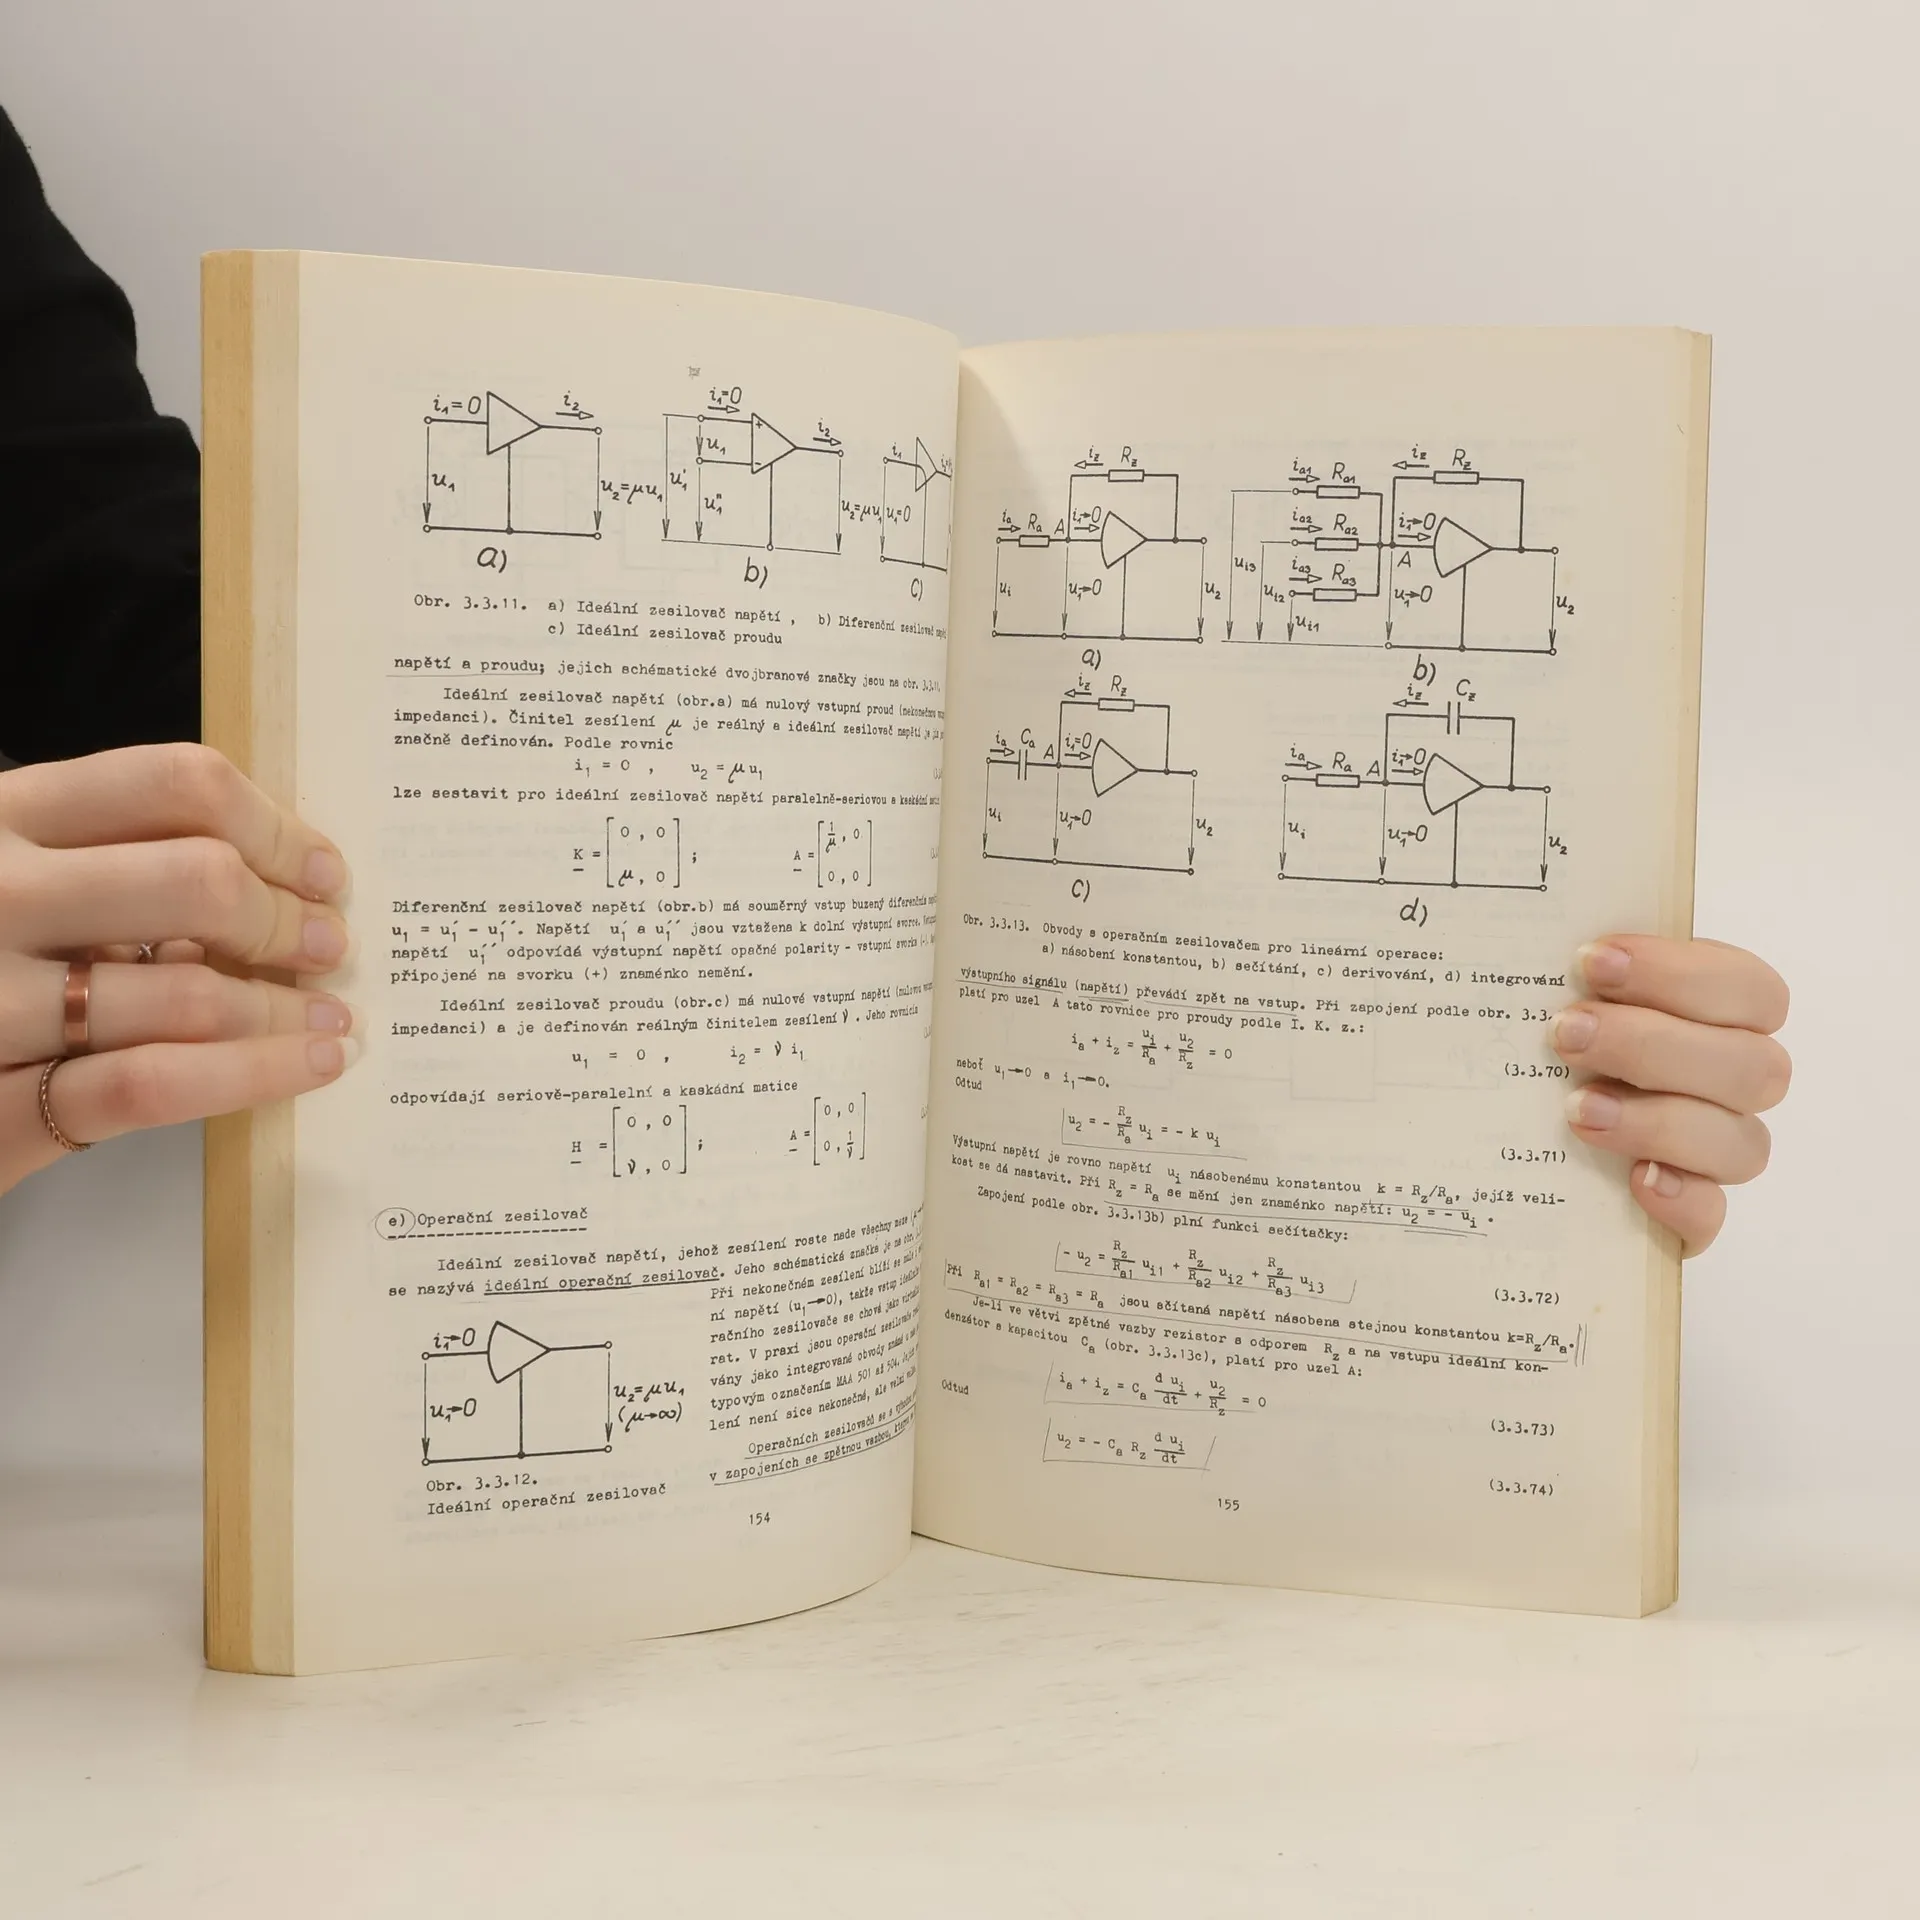 i₁=0
i₂
u₁
u₂=μu₁
a)
i₁=0
u₁
u₁'
u₁''
+
-
i₂
u₂=μu₁
b)
i₁
u₁=0
c)
Obr. 3.3.11. a) Ideální zesilovač napětí , b) Diferenční zesilovač
c) Ideální zesilovač proudu
napětí a proudu; jejich schématické dvojbranové značky jsou na obr. 3.3.11.
Ideální zesilovač napětí (obr.a) má nulový vstupní proud (nekonečnou
impedanci). Činitel zesílení μ je reálný a ideální zesilovač napětí je
značně definován. Podle rovnic
i₁ = 0 , u₂ = μ u₁
lze sestavit pro ideální zesilovač napětí paralelně-seriovou a kaskádní
K = [ 0 , 0 ; A = [ 1/μ , 0
μ , 0 ] 0 , 0 ]
Diferenční zesilovač napětí (obr.b) má souměrný vstup buzený diferenčním
u₁ = u₁´ - u₁´´. Napětí u₁´ a u₁´´ jsou vztažena k dolní výstupní svorce.
napětí u₁´´ odpovídá výstupní napětí opačné polarity - vstupní svorka (-),
připojené na svorku (+) znaménko nemění.
Ideální zesilovač proudu (obr.c) má nulové vstupní napětí (nulovou
impedanci) a je definován reálným činitelem zesílení ν . Jeho rovnicím
u₁ = 0 , i₂ = ν i₁
odpovídají seriově-paralelní a kaskádní matice
H = [ 0 , 0 ; A = [ 0 , 0
ν , 0 ] 0 , 1/ν ]
e) Operační zesilovač
Ideální zesilovač napětí, jehož zesílení roste nade všechny meze
se nazývá ideální operační zesilovač. Jeho schématická značka je na obr.
Při nekonečném zesílení blíží se
ní napětí (u₁→0), takže vstup
račního zesilovače se chová jako
rat. V praxi jsou operační zesilovače
vány jako integrované obvody
typovým označením MAA 501 až 504.
lení není sice nekonečné, ale velmi
Operačních zesilovačů se
v zapojeních se zpětnou vazbou,
i₁→0
u₁→0
u₂=μu₁
(μ→∞)
Obr. 3.3.12.
Ideální operační zesilovač
154
i_z R_z
i_a R_a A i₁→0
u_i u₁→0 u₂
a)
i_a1 R_a1 i_z R_z
i_a2 R_a2 i₁→0
i_a3 R_a3 A
u_i3 u_i2 u_i1 u₁→0 u₂
b)
i_z R_z
i_a C_a A i₁=0
u_i u₁→0 u₂
c)
i_z C_z
i_a R_a A i₁→0
u_i u₁→0 u₂
d)
Obr. 3.3.13. Obvody s operačním zesilovačem pro lineární operace:
a) násobení konstantou, b) sečítání, c) derivování, d) integrování
výstupního signálu (napětí) převádí zpět na vstup. Při zapojení podle obr. 3.3.
platí pro uzel A tato rovnice pro proudy podle I. K. z.:
i_a + i_z = u_i/R_a + u₂/R_z = 0 (3.3.70)
neboť u₁→0 a i₁→0.
Odtud
u₂ = - R_z/R_a u_i = - k u_i (3.3.71)
Výstupní napětí je rovno napětí u_i násobenému konstantou k = R_z/R_a, jejíž veli-
kost se dá nastavit. Při R_z = R_a se mění jen znaménko napětí: u₂ = - u_i .
Zapojení podle obr. 3.3.13b) plní funkci sečítačky:
- u₂ = R_z/R_a1 u_i1 + R_z/R_a2 u_i2 + R_z/R_a3 u_i3 (3.3.72)
Při R_a1 = R_a2 = R_a3 = R_a jsou sčítaná napětí násobena stejnou konstantou k=R_z/R_a.
Je-li ve větvi zpětné vazby rezistor s odporem R_z a na vstupu ideální kon-
denzátor s kapacitou C_a (obr. 3.3.13c), platí pro uzel A:
i_a + i_z = C_a d u_i/dt + u₂/R_z = 0 (3.3.73)
Odtud
u₂ = - C_a R_z d u_i/dt (3.3.74)
155